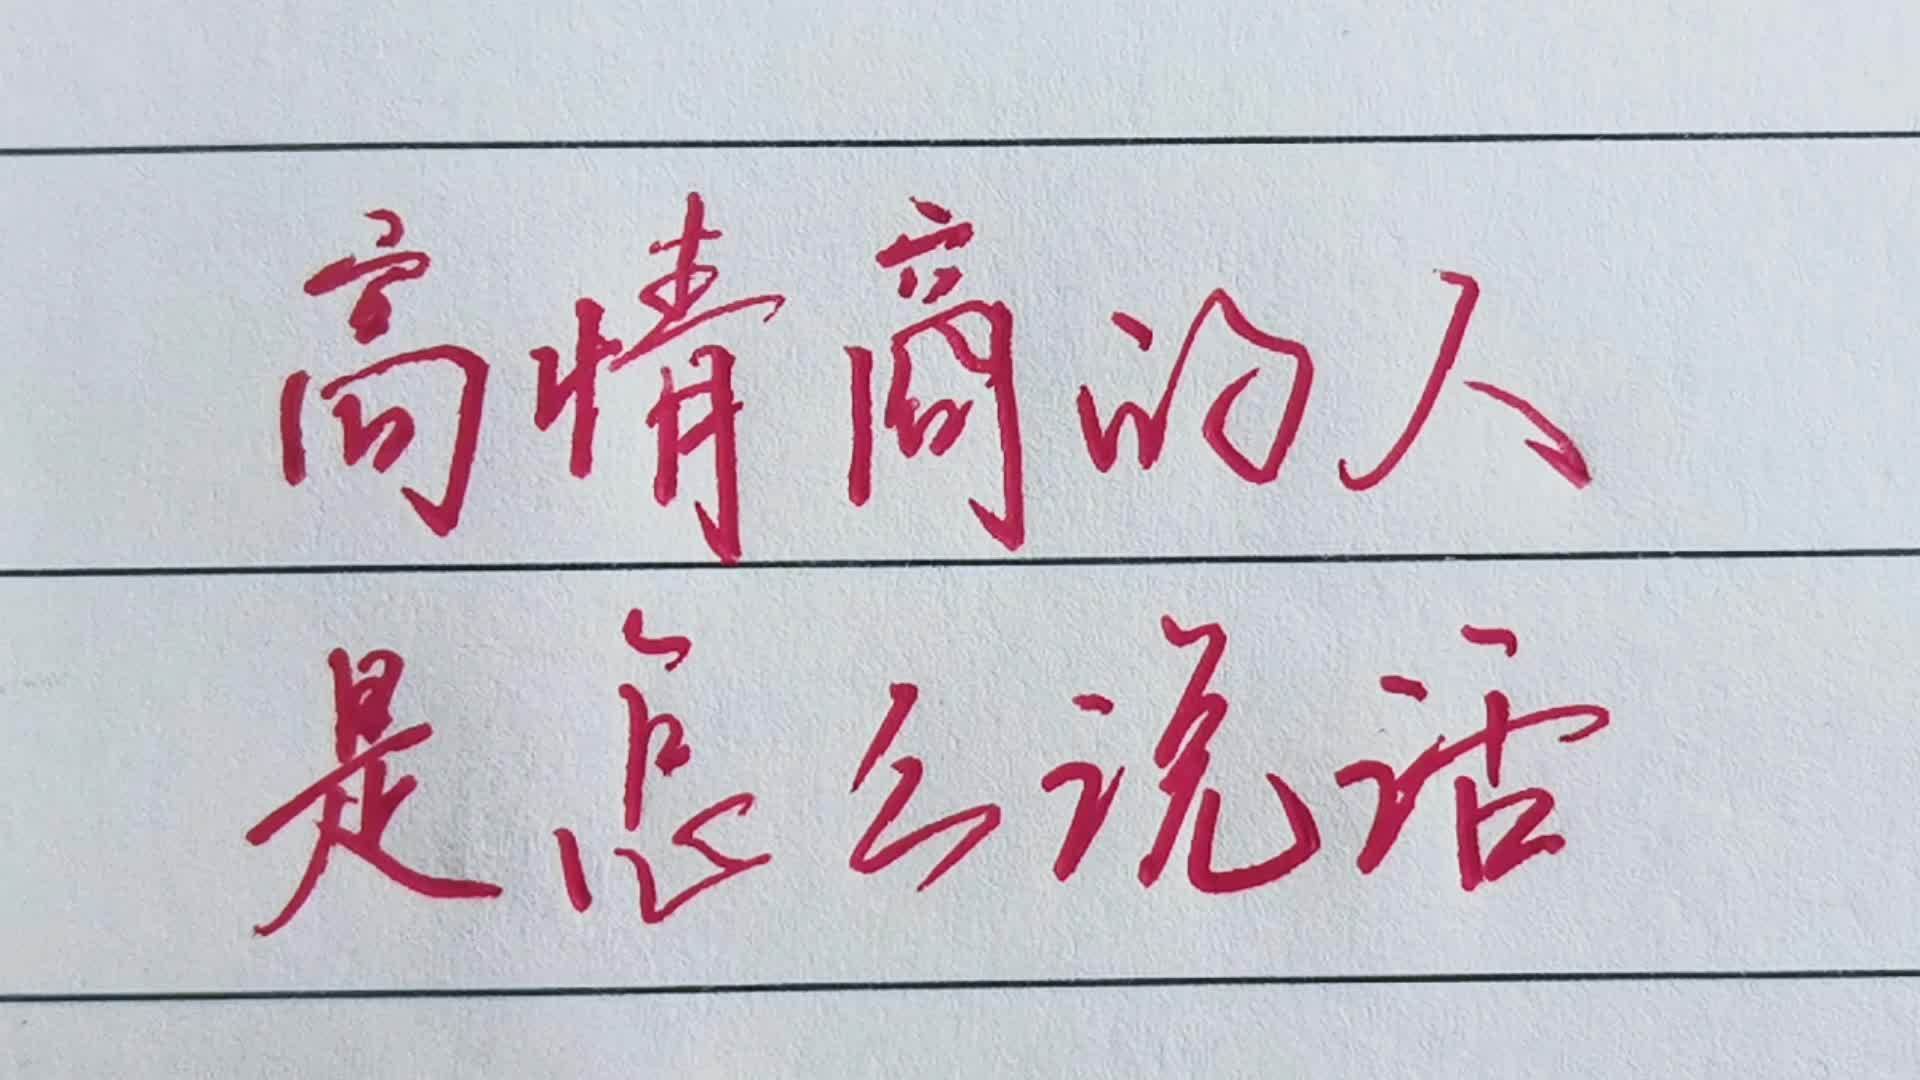 高情商的人
是怎么说话